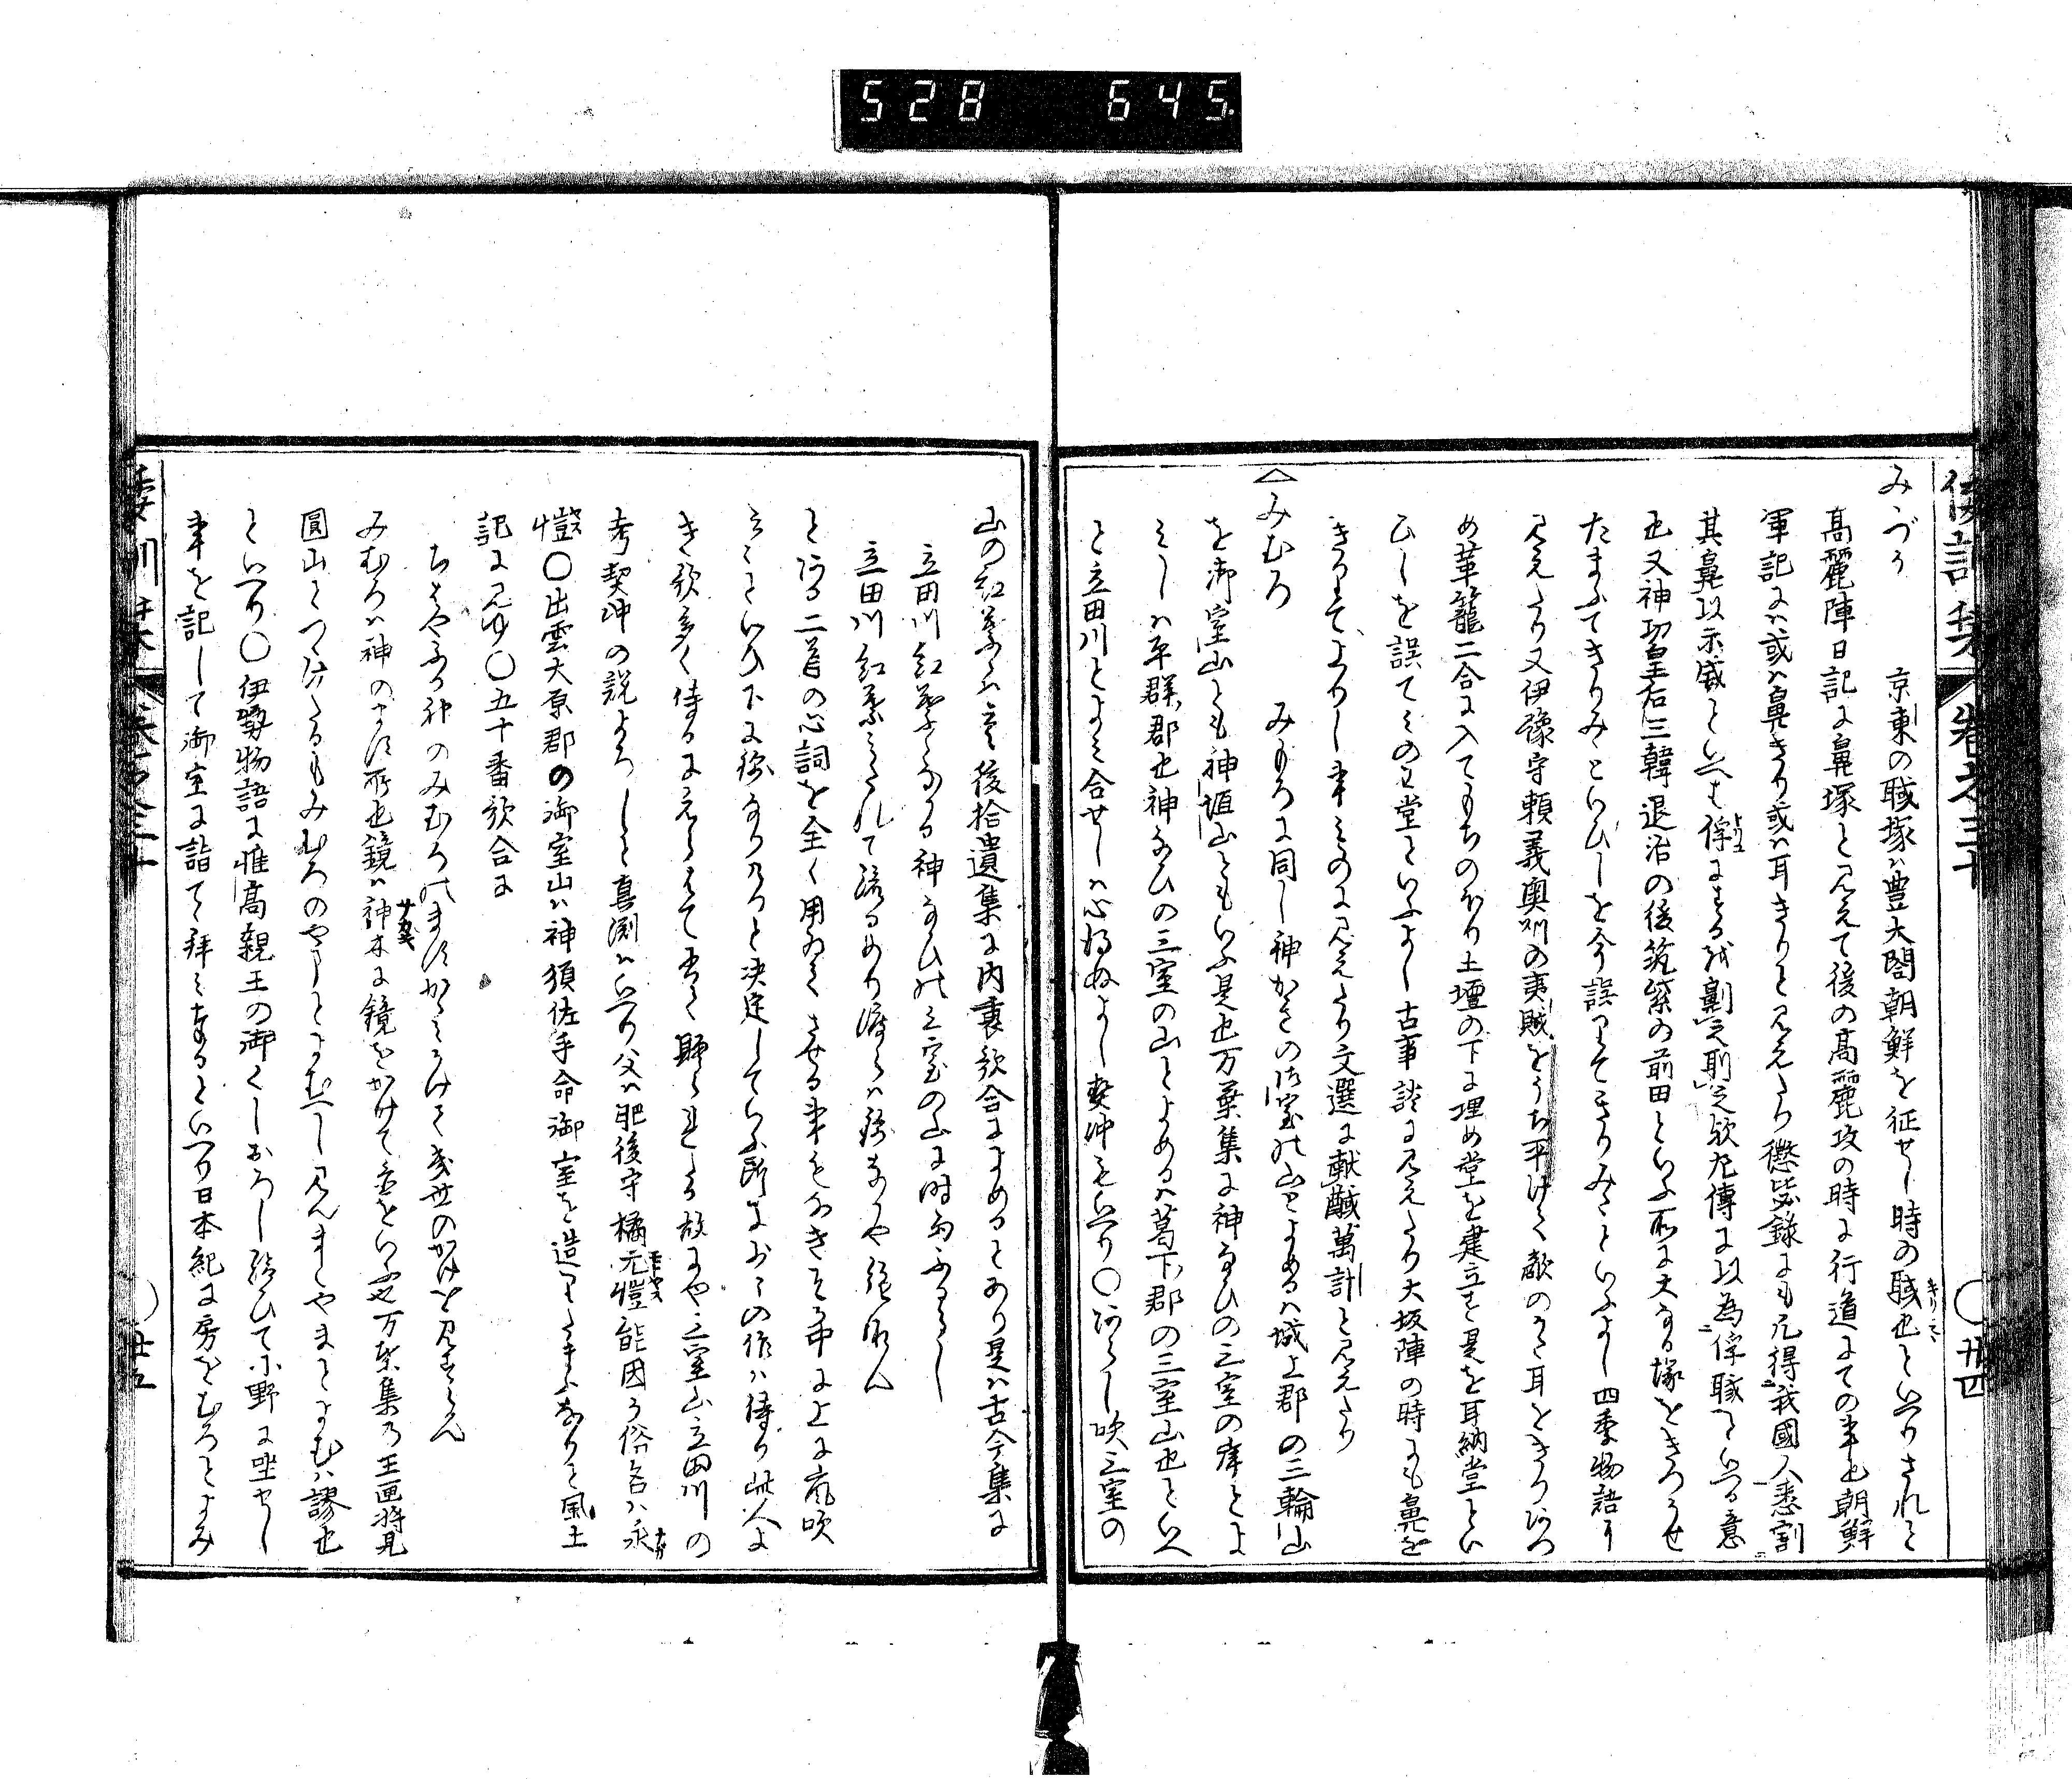 528 645
倭訓栞 巻之三十 ○廿四
みゝづか 京東の聝塚ハ豊太閤朝鮮を征せし時の聝也といへりされと
高麗陣日記に鼻塚と見えて後の高麗攻の時に行道にての事也朝鮮
軍記にハ或ハ鼻きり或ハ耳きりと見えたり懲毖錄にも凡得我國人悉割
其鼻以示威といへは俘にするを劓之刵之歟左傳に以為俘聝といへる意
也又神功皇后三韓退治の後筑紫の前田といふ所に大なる塚をきつかせ
たまふてきりみゝといひしを今誤りてきりみゝといふよし四季物語に
見えたり又伊豫守頼義奥州の夷賊をうち平けて敵のかた耳をきりあつ
め革籠二合に入てもちのぼり土壇の下に埋め堂を建立す是を耳納堂とい
ひしを誤てみのわ堂といふよし古事談に見えたり大坂陣の時にも鼻を
きりもてよりし事ものに見えたり文選に献馘萬計と見えたり
△みむろ みもろに同し神かきの御室の山とよめるハ城上郡の三輪山
を御室山とも神垣山ともいふ是也万葉集に神なひの三室の岸とよ
みしハ平群郡也神なひの三室の山とよめるハ葛下郡の三室山也といへ
と立田川とよみ合せしハ心得ぬよし契沖もいへり○あらし吹三室の
山の紅葉ハゝ後拾遺集に内裏歌合によめるとあり是ハ古今集に
立田川紅葉ゝなかる神なひの三室の山に時雨ふるらし
立田川紅葉みたれて流るめり渡らハ錦中や絶なん
とある二首の心詞を全く用ゐてさせる事もなきその中に上に嵐吹
き歌多く侍るに
考契沖の説よろしと真渕ハいへり父ハ肥後守橘元愷能因か俗名ハ永
愷○出雲大原郡の御室山ハ神須佐乎命御室を造りたまふなりと風土
記に見ゆ○五十番歌合に
ちはやふる神のみむろのますかゝみかけて幾世のかけを見すらん
みむろハ神のます所也鏡ハ神木に鏡をかけていふをいへ也万葉集の玉匣将見
圓山とつゝけたるもみむろのやまとよむへし見んまとやまとよむハ謬也
といへり○伊勢物語に惟髙親王の御くしおろし給ひて小野に坐せし
事を記して御室に詣てゝ拝みたるといへり日本紀に房をむろとよみ
倭訓栞 巻之三十 ○廿五